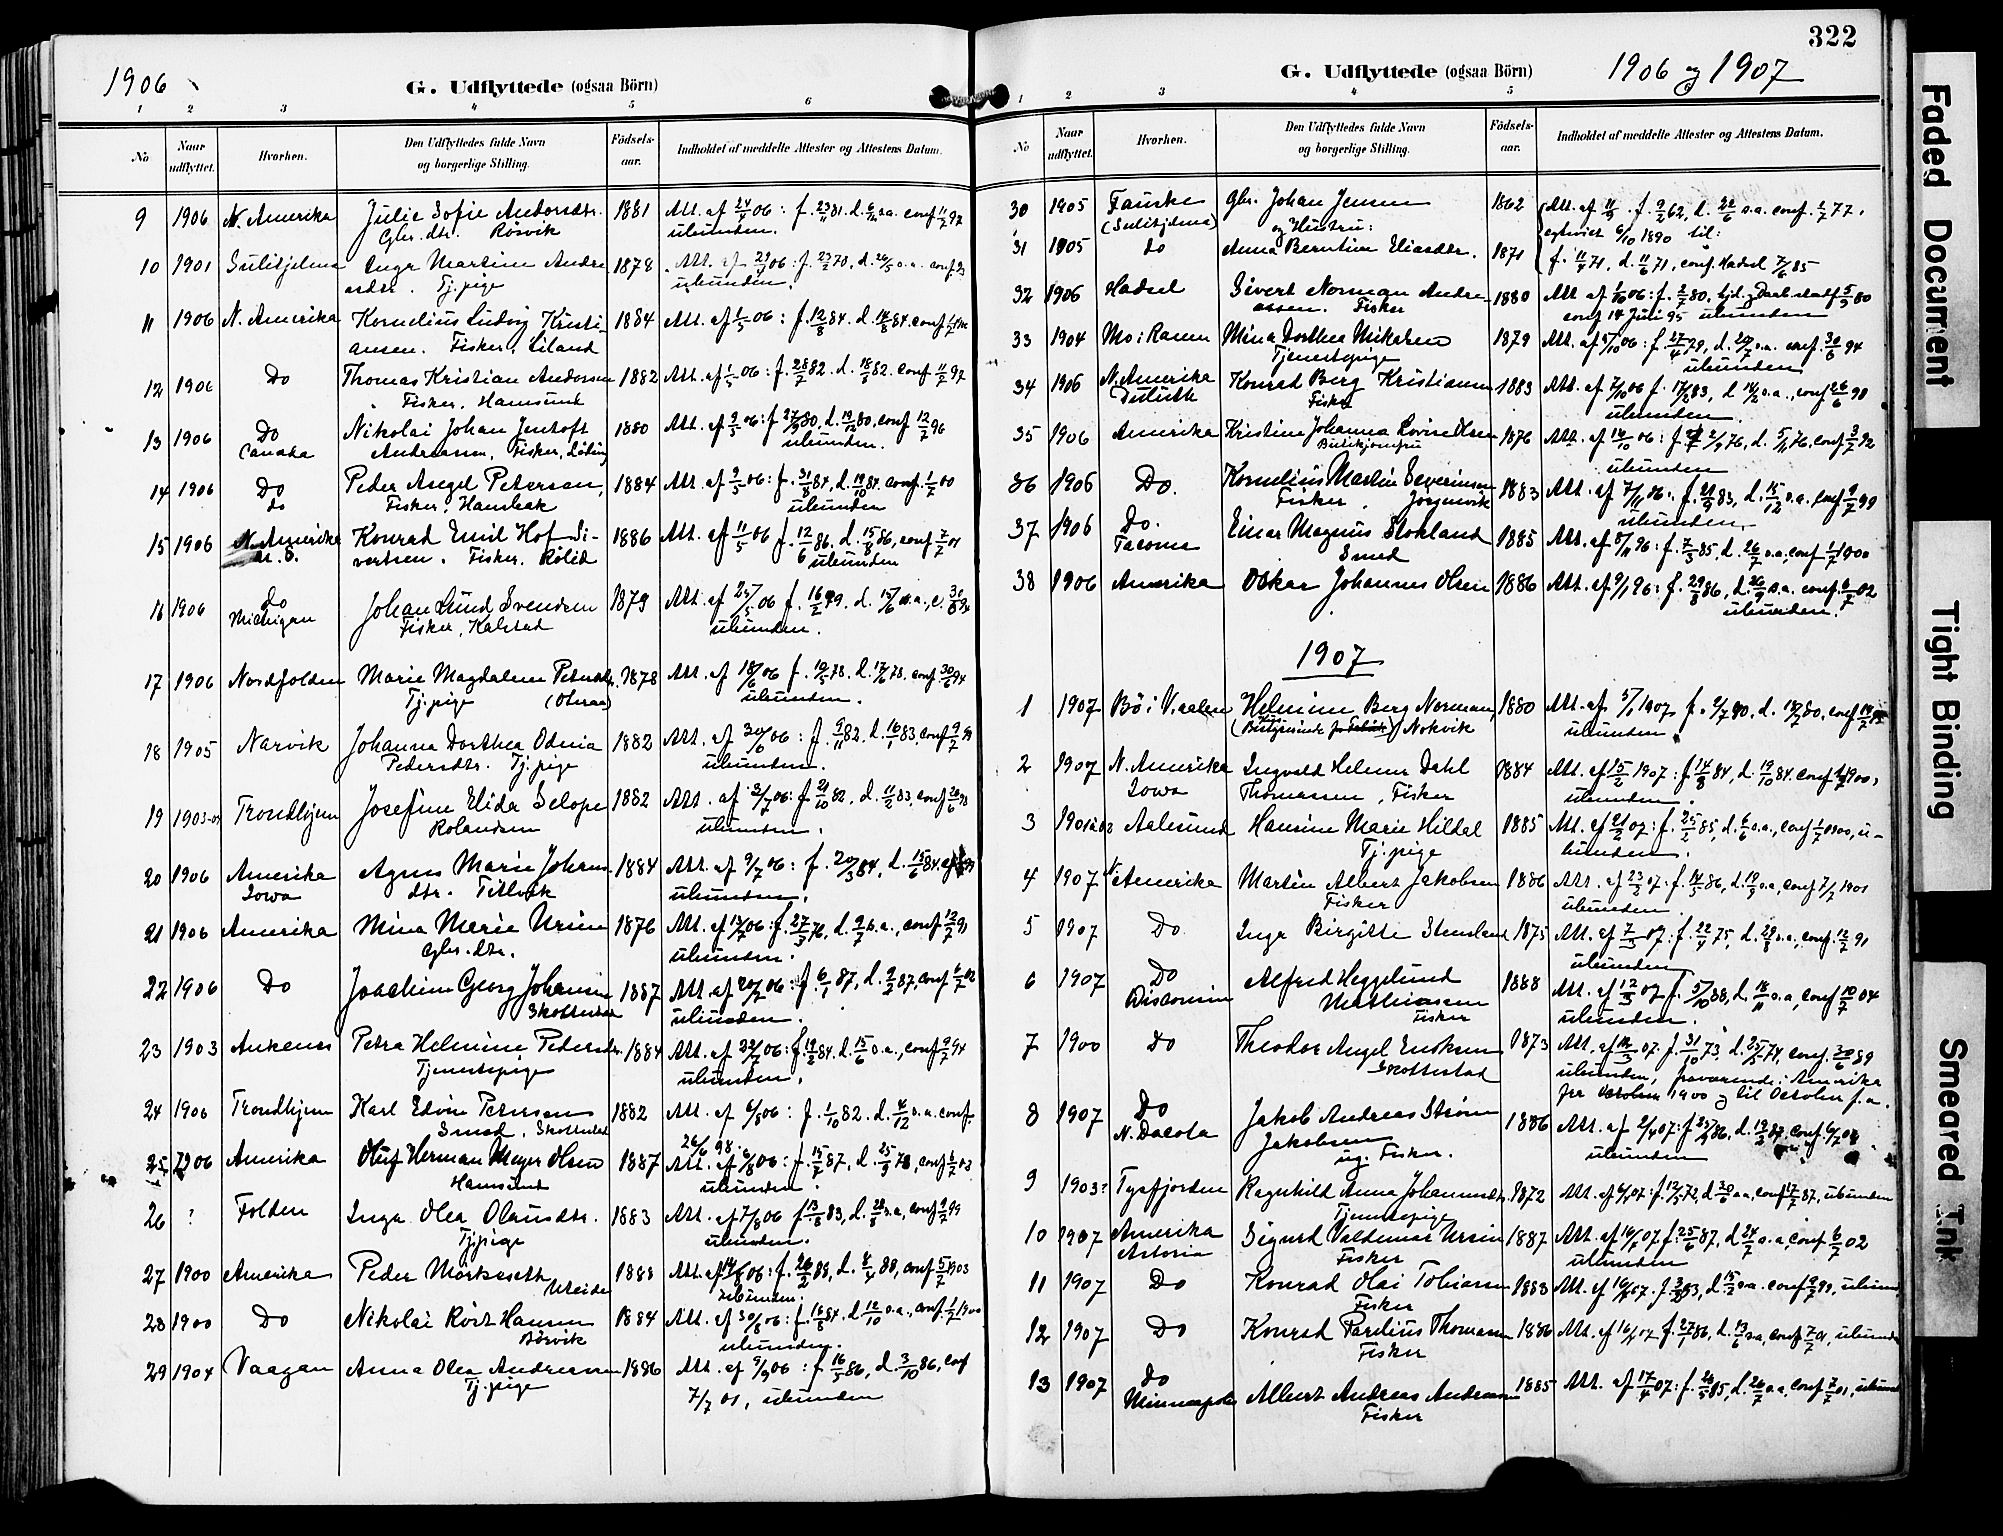 1906
G. Udflyttede (ogsaa Börn)
1 2 3 4 5 6
No
Naar udflyttet.
Hvorhen.
Den Udflyttedes fulde Navn og borgerlige Stilling.
Födsels-aar.
Indholdet af meddelte Attester og Attestens Datum.
9 1906 N. Amerika Julie Sofie Andersdtr. 1881 Att. af 24/4 06: f. 23/1 81. d. 6/3 s.a. conf 11/7 97
Gbr. dtr. Rösvik ubunden.
10 1901 Sulitjelma Inga Martine Andre 1878 Att. af 29/4 06: f. 23/2 78, d. 26/5 s.a. conf
asdtr. Tj. pige ubunden.
11 1906 N. Amerika Kornelius Ludvig Kristi- 1884 Att. af 1/5 06: f. 12/8 84. d. 14/8 84. conf
ansen. Fisker, Liland
12 1906 Do Thomas Kristian Andersen 1882 Att. af 1/5 06: f. 28/2 82. d. 18/5 82. conf 11/7 97
Fisker, Hamsund
13 1906 Do Nikolai Johan Jentoft 1880 Att. af 9/5 06: f. 27/9 80, d. 19/10 80, conf 12/7 96
Canada Andreassen, Fisker, Löding ubunden.
14 1906 Do Peder Angel Petersen, 1884 Att. af 9/5 06: f. 31/8 84, d. 19/10 84. conf. 1/7 00
do Fisker, Hambak ubunden
15 1906 N. Amerika Konrad Emil Hof Si- 1886 Att. af 11/5 06 f. 12/6 86. d. 15/8 86, conf 7/7 01
vertsen. Fisker. Rölid ubunden
16 1906 Do Johan Lund Svendsen 1879 Att. af 25/5 06 f. 16/2 79. d. 15/6 s.a., c. 30/
Michigan Fisker, Kalstad ubunden.
17 1906 Nordfolden Marie Magdalene Petersdtr. 1878 Att. af 18/6 06 f. 19/5 78. d. 17/6 78. conf 30/6 94
Tj. pige ubunden.
18 1905 Narvik Johanna Dorthea Odnia 1882 Att. af 30/6 06: f. 9/11 82. d. 16/1 83, conf 9/7 99
Pedersdtr. Tj. pige ubunden.
19 1903 Trondhjem Josefine Elida Selope 1882 Att. af 2/7 06: f. 21/10 82. d. 11/2 83, conf 26/6 98
Rolandsen ubunden.
20 1906 Amerika Agnes Marie Johans 1884 Att. af 9/7 06: f. 20/3 84, d. 15/6 84
Iowa dtr. Tillvik ubunden.
21 1906 Amerika Mina Marie Ursin 1876 Att. af 17/7 06: f. 27/3 76, d. 9/7 s.a., conf 12/7 91
Gbr. dtr. ubunden.
22 1906 Do Joachim Georg Johansen 1887 Att. af 20/7 06: f. 6/1 87, d. 9/2 87, conf 6/7 02
Skottestad ubunden.
23 1903 Ankenes Petra Helmine Pedersdtr. 1884 Att. af 22/7 06: f. 19/2 84. d. 15/6 s.a., conf 9/7 94
Tjenestepige ubunden.
24 1906 Trondhjem Karl Edvin Petersen 1882 Att. af 6/8 06: f. 1/10 82. d. 4/12 s.a. conf.
Smed, Skottestad 26/6 98.
25 1906 Amerika Oluf Herman Meyer Olsen 1887 Att. af 6/8 06: f. 15/7 87, d. 25/9 78, conf 6/7 02
Hamsund ubunden.
26 ? Folden Inga Olea Olausdtr. 1883 Att. af 7/8 06 f. 13/8 83, d. 28/8 s.a., conf 9/7 99
Tj. pige ubunden.
27 1900 Amerika Peder Mörkeseth 1888 Att. af 14/8 06: f. 26/2 88, d. 8/4 88, conf 5/7 1903
ubunden.
28 1900 Do Nikolai Röst Hansen 1884 Att. af 30/8 06: f. 16/8 84. d. 12/10 s.a., conf 1/7 1900
Rösvik ubunden.
29 1904 Vaagan Anna Olea Andreassen 1886 Att. af 9/9 06: f. 16/5 86, d. 3/10 86, conf
Tj. pige 7/7 01, ubunden
322
G. Udflyttede (ogsaa Börn) 1906 og 1907
1 2 3 4 5
No
Naar udflyttet.
Hvorhen.
Den Udflyttedes fulde Navn og borgerlige Stilling.
Födsels-aar.
Indholdet af meddelte Attester og Attestens Datum.
30 1905 Fauske Gbr. Johan Jensen 1862 Att. af 11/9. f. 9/2 62, d. 22/6 s.a. conf. 1/7 77.
(Sulitjelma) og Hustru: egteviet 6/10 1890 til:
31 1905 do Anna Berntine Eliasdtr. 1871 f. 11/4 71, d. 11/6 71, conf. Hadsel 7/6 85
32 1906 Hadsel Sivert Norman Andre 1880 Att. af 1/10 06: f. 2/7 80, hjd. g Daab stadf 5/9 80
assen. Fisker conf 14 Juli 95 ubunden
33 1904 Mo i Ranen Mina Dorthea Mikalsen 1879 Att. af 5/10 06: f. 27/4 79, d. 20/7 s.a. conf. 30/6 94
Tjenestepige ubunden
34 1906 N. Amerika Konrad Berg Kristiansen 1883 Att. af 7/10 06 f. 17/1 83, d. 14/2 s.a., conf 26/6 98
Duluth Fisker ubunden
35 1906 Amerika Kristine Johanna Lovise Olsen 1876 Att. af 14/10 06: f. 2/9 76, d. 5/11 76, conf 3/7 92
ubunden
36 1906 Do. Kornelius Martin Severinsen 1883 Att. af 7/11 06: f. 21/9 83, d. 15/12 s.a. conf 9/7 99
Fisker. Jörgenvik ubunden.
37 1906 Do. Einar Magnus Stokland 1885 Att. af 8/11 96: f. 7/3 85, d. 26/7 s.a., conf 1/7 1900
Tacoma Smed
38 1906 Amerika Oskar Johannes Olsen 1886 Att. af 9/11 96: f. 29/8 86, d. 26/9 s.a. conf. 6/7 02
ubunden.
1907
1 1907 Bö i V.aalen Helmine Berg Norman, 1880 Att. af 5/1 1907. f. 9/7 80. d. 19/7 80, conf 14/7 95
Nokvik ubunden.
2 1907 N. Amerika Ingvald Helmer Dahl 1884 Att. af 15/2 1907: f. 14/8 84, d. 19/10 84. conf 1/7 1900,
Iowa Thomassen, Fisker ubunden.
3 Aalesund Hansine Marie Hildal 1885 Att. af 21/2 07: f. 25/2 85, d. 6/6 s.a., conf 1/7 1900, u-
Tj. pige bunden.
4 1907 Amerika Martin Albert Jakobsen 1886 Att. af 23/2 07: f. 14/5 86, d. 19/9 s.a., conf 7/7 1901
Fisker ubunden.
5 1907 Do. Inga Birgitte Stensland 1875 Att. af 7/3 07: f. 22/4 75, d. 29/8 s.a., conf. 12/7 91
ubunden
6 1907 Do Alfred Heggelund 1888 Att. af 12/3 07 f. 5/10 88, d. 18/11 s.a., conf 10/7 04
Wisconsin Mathiassen ubunden.
Fisker
7 1900 Do Theodor Angel Enoksen 1873 Att. af 14/3 07. f. 31/10 73, d. 25/5 74, conf. 30/6 89
Skottestad ubunden, fraværende i Amerika
fra 1900 og til October f.a.
8 1907 Do Jakob Andreas Ström 1886 Att. af 2/4 07: f. 25/9 86, d. 19/3 87. conf. 6/7 02
N. Dacota Jakobsen ubunden
ug. Fisker.
9 1903? Tysfjorden Ragnhild Anna Johannesdtr. 1872 Att. af 6/4 07: f. 12/5 72, d. 30/6 s.a., conf 17/7 87, ubunden
Tjenestepige
10 1907 Amerika Sigurd Valdemar Ursin 1887 Att. af 16/4 07 f. 25/6 87, d. 24/7 s.a., conf. 6/7 02
Astoria Fisker ubunden
11 1907 Do Konrad Olai Tobiassen 1883 Att. af 16/4 07. f. 3/1 83, d. 15/2 s.a. conf 9/7 99, ubund
Fisker
12 1907 Do Konrad Parelius Thomassen 1886 Att. af 16/4 07 f. 27/4 86, d. 13/6 s.a., conf 7/7 01, ubund
Fisker
13 1907 Do Albert Andreas Andreassen 1885 Att. af 17/4 07: f. 28/5 85, d. 26/7 s.a., conf 7/7 01, ubund
Minneapolis Fisker
Faded Document
Tight Binding
Smeared Ink